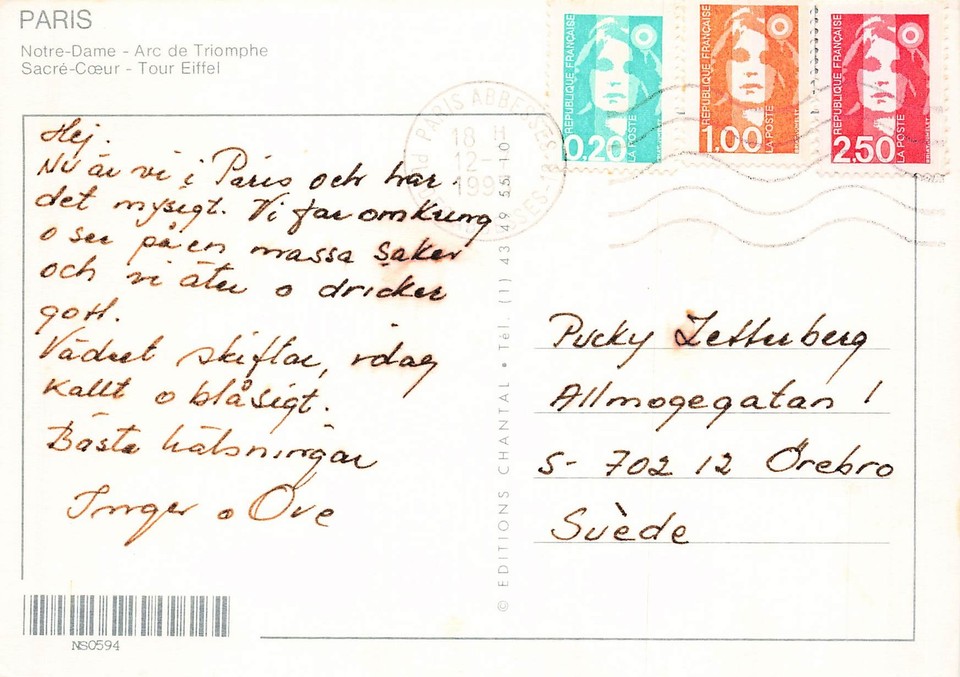 PARIS
Notre-Dame - Arc de Triomphe
Sacré-Cœur - Tour Eiffel
Hej.
Nu är vi i Paris och har
det mysigt. Vi far omkring
o ser på en massa saker
och vi äter o dricker
gott.
Vädret skiftar, idag
kallt o blåsigt.
Bästa hälsningar
Inger o Ove
NS0594
© EDITIONS CHANTAL • Tél. (1) 43 49 55 10
PARIS ABBESSES
18 H
12-
199
RÉPUBLIQUE FRANÇAISE
0,20
LA POSTE
RÉPUBLIQUE FRANÇAISE
1,00
LA POSTE
RÉPUBLIQUE FRANÇAISE
2,50
LA POSTE
Pucky Zetterberg
Allmogegatan 1
S- 702 12 Örebro
Suède